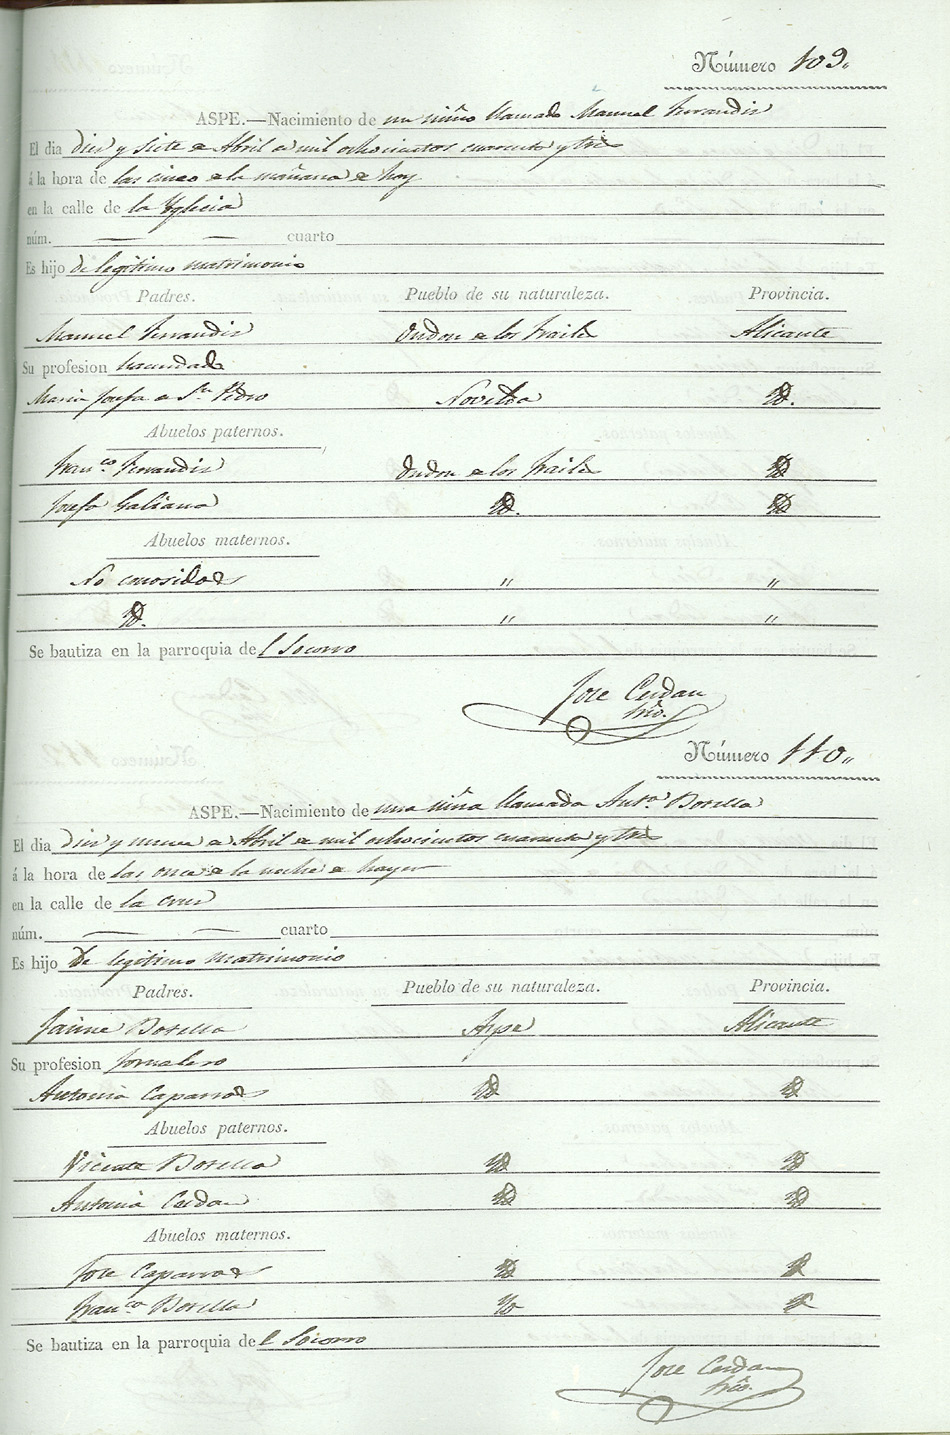 Número 109.
ASPE.—Nacimiento de un niño llamado Manuel Ferrandiz
El dia diez y siete de Abril de mil ochocientos cuarenta y tres
á la hora de las cinco de la mañana de hoy
en la calle de la Yglecia
núm. — — cuarto
Es hijo de legitimo matrimonio
Padres. Pueblo de su naturaleza. Provincia.
Manuel Ferrandiz Ondon de los Fraile Alicante
Su profesion hacendado
Maria Josefa de Sn. Pedro Novelda Yd.
Abuelos paternos.
Franco. Ferrandiz Ondon de los Fraile Yd.
Josefa Galiana Yd. Yd.
Abuelos maternos.
No conosidos " "
Yd. " "
Se bautiza en la parroquia del Socorro
Jose Cerdan
Srio.
Número 110.
ASPE.—Nacimiento de una niña llamada Anta. Botella
El dia diez y nueve de Abril de mil ochocientos cuarenta y tres
á la hora de las once de la noche de hayer
en la calle de la Cruz
núm. — — cuarto
Es hijo de legitimo matrimonio
Padres. Pueblo de su naturaleza. Provincia.
Jaime Botella Aspe Alicante
Su profesion Jornalero
Antonia Caparros Yd. Yd.
Abuelos paternos.
Vicente Botella Yd. Yd.
Antonia Cerdan Yd. Yd.
Abuelos maternos.
Jose Caparros Yd. Yd.
Franca. Botella Yd. Yd.
Se bautiza en la parroquia del Socorro
Jose Cerdan
Srio.